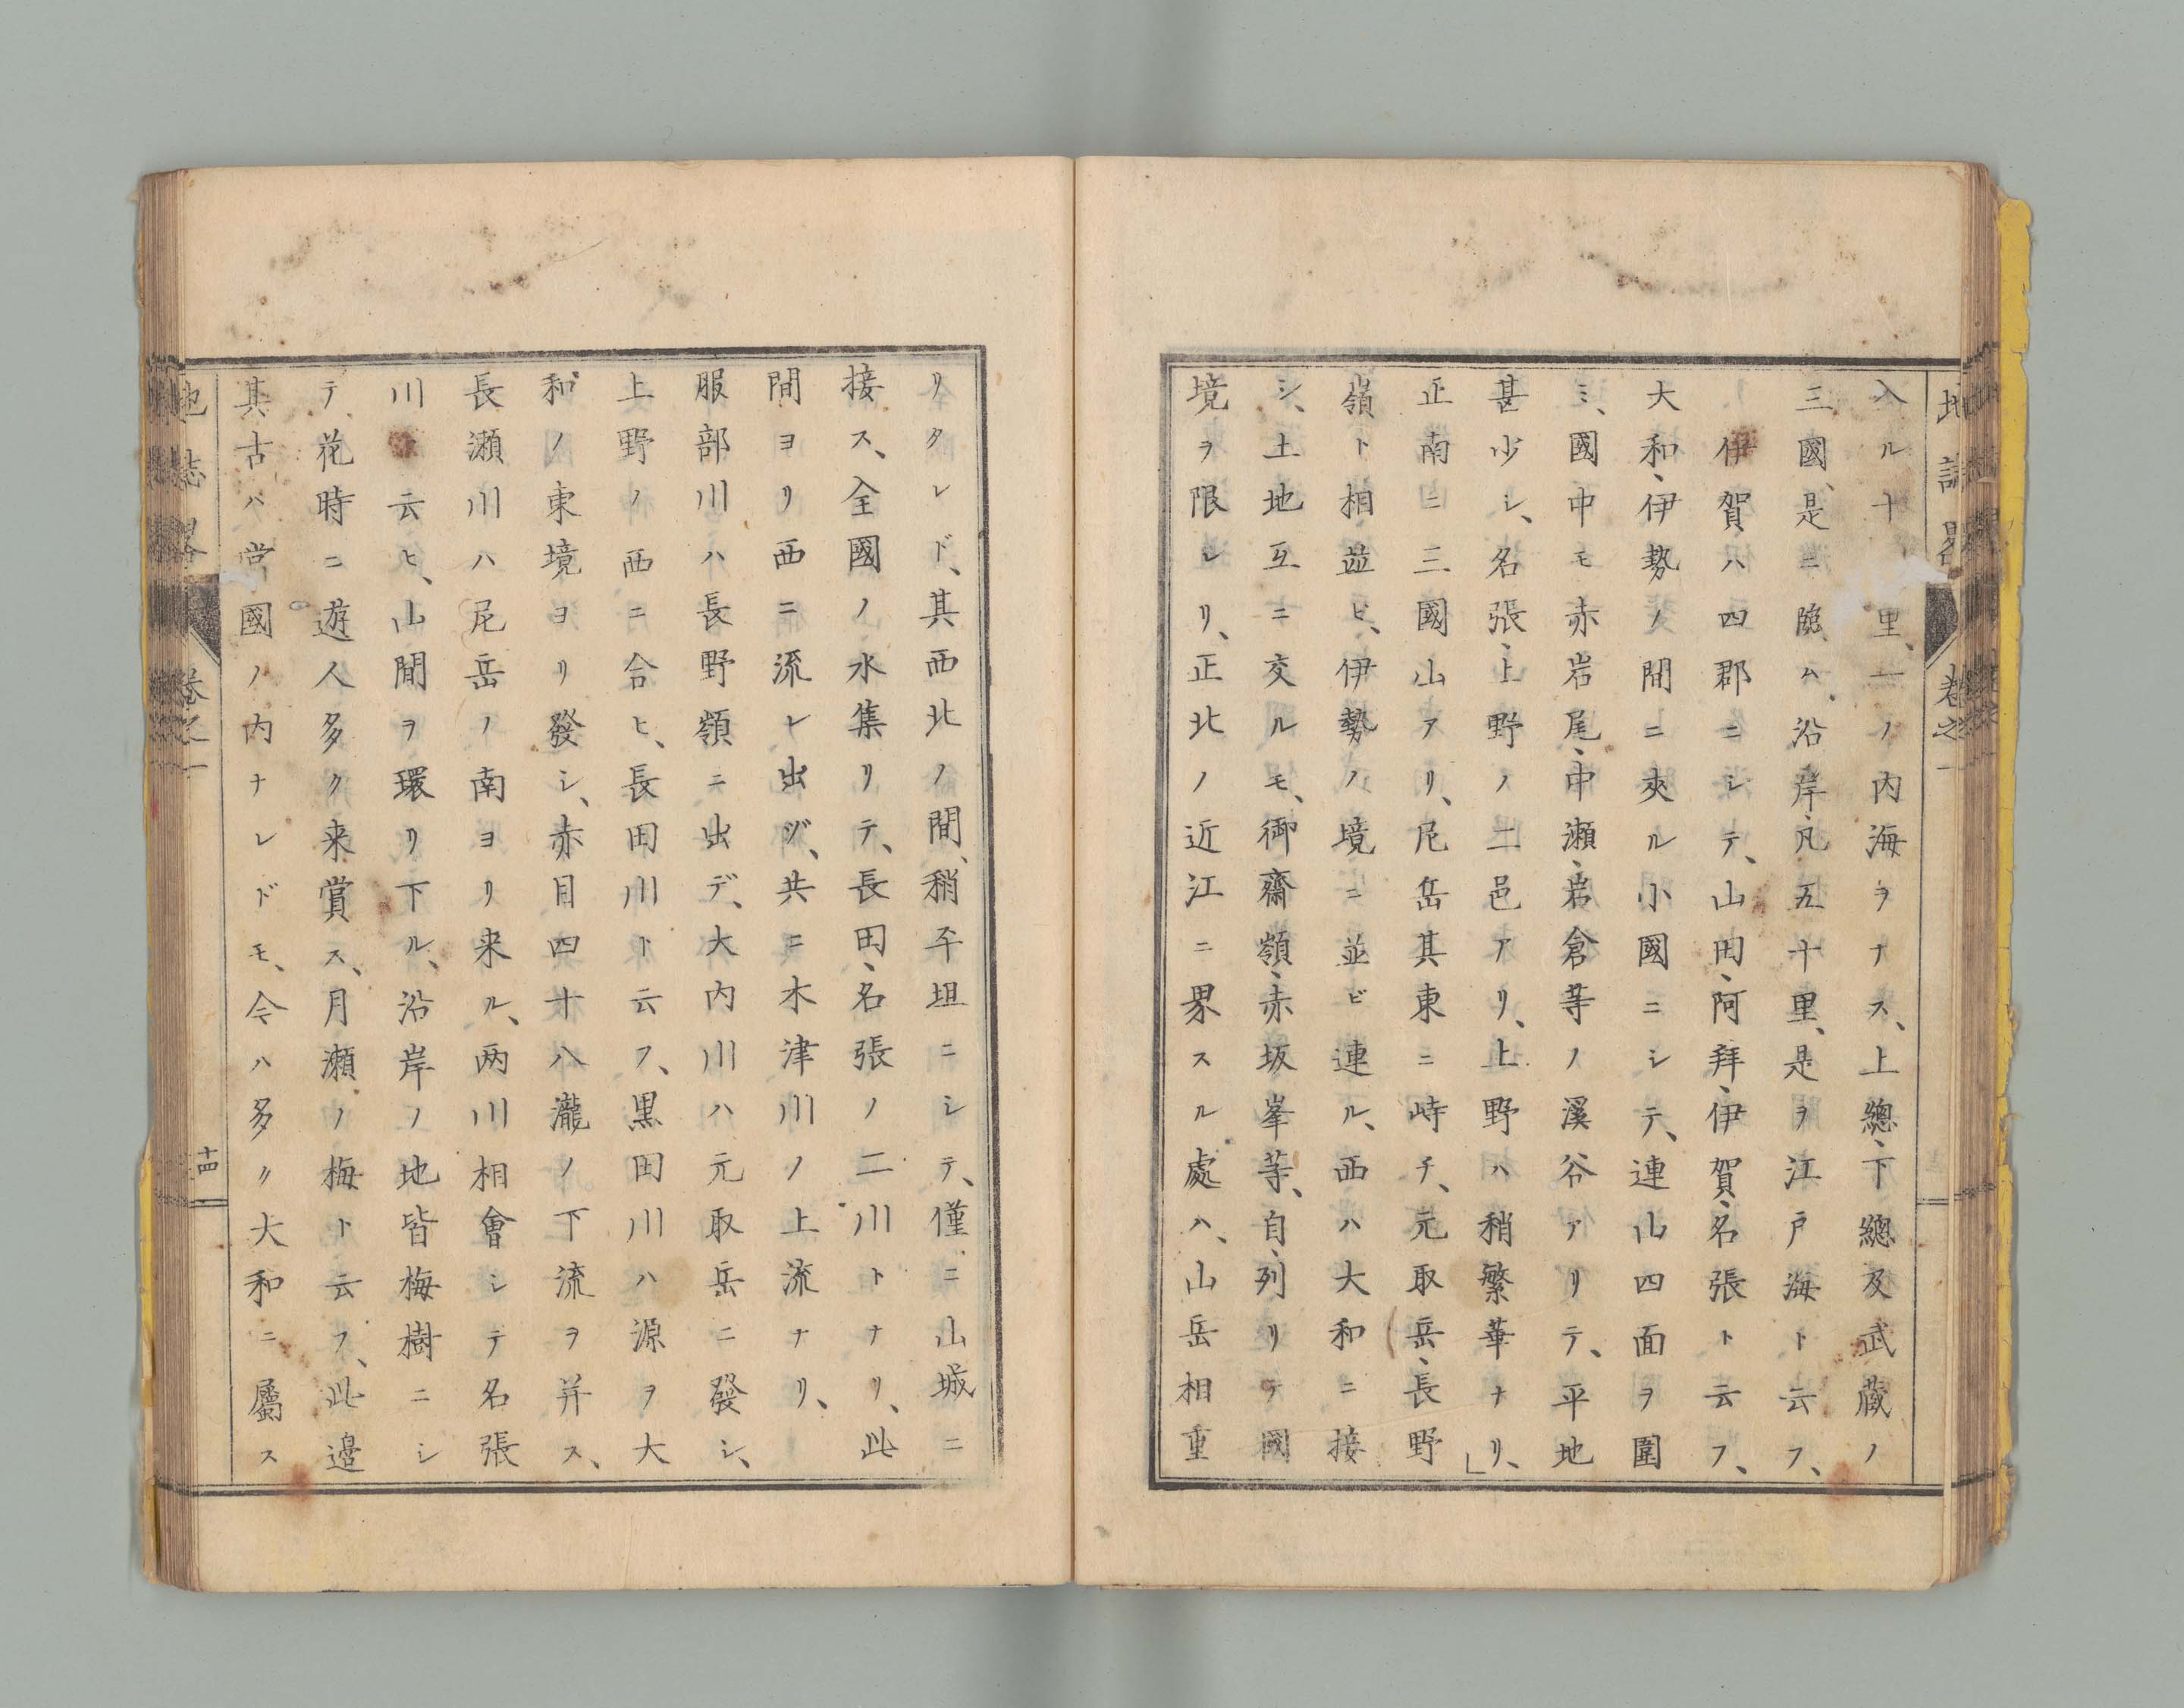 地誌畧 卷之一
入ル十里、一ノ內海ヲナス、上總、下總及武藏ノ
三國、是ニ臨ム、沿岸、凡五十里、是ヲ江戸海ト云フ、
伊賀ハ四郡ニシテ、山田、阿拜、伊賀、名張ト云フ、
大和、伊勢ノ間ニ夾ル小國ニシテ、連山四面ヲ圍
ミ、國中モ赤岩尾、中瀬、岩倉等ノ溪谷アリテ、平地
甚少シ、名張、上野ノ二邑アリ、上野ハ稍繁華ナリ、」
正南ニ三國山アリ、尼岳其東ニ峙チ、元取岳、長野
嶺ト相並ビ、伊勢ノ境ニ並ビ連ル、西ハ大和ニ接
シ、土地互ニ交ルモ、御齋嶺、赤坂峯等、自、列リテ國
境ヲ限レリ、正北ノ近江ニ界スル處ハ、山岳相重
リタレド、其西北ノ間、稍平坦ニシテ、僅ニ山城ニ
接ス、全國ノ水集リテ、長田、名張ノ二川トナリ、此
間ヨリ西ニ流レ出ヅ、共ニ木津川ノ上流ナリ、
服部川ハ長野嶺ニ出デ、大內川ハ元取岳ニ發シ、
上野ノ西ニ合ヒ、長田川ト云フ、黒田川ハ源ヲ大
和ノ東境ヨリ發シ、赤目四十八瀧ノ下流ヲ并ス、
長瀬川ハ尼岳ノ南ヨリ来ル、两川相會シテ名張
川ト云ヒ、山間ヲ環リ下ル、沿岸ノ地皆梅樹ニシ
テ、花時ニ遊人多ク来賞ス、月瀬ノ梅ト云フ、此邉
其古ハ當國ノ内ナレドモ、今ハ多ク大和ニ屬ス
地誌畧 卷之一 十四